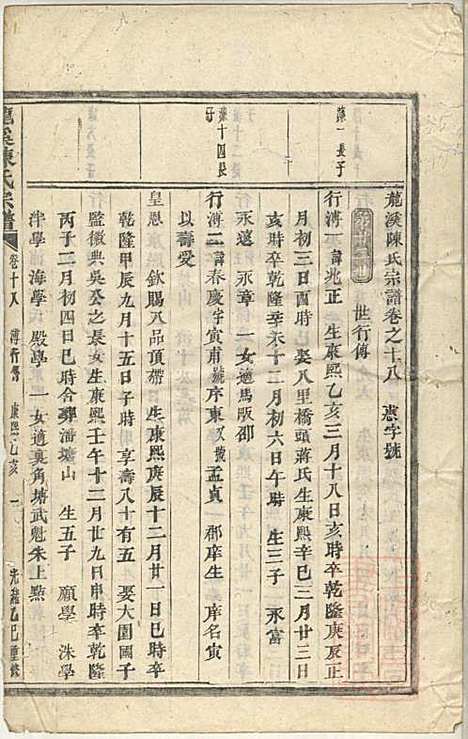 龍溪陳氏宗譜卷之十八　惠字號
世行傳
陳一長子
行溥一諱兆正　生康熙乙亥三月十八日亥時卒乾隆庚辰正
月初三日酉時　娶八里橋頭蔣氏生康熙辛巳三月廿三日
亥時卒乾隆辛未十二月初六日午時　生三子　永富
永遠　永章　一女適馬版邵
陳十四長子
行溥二諱春慶字寅甫號序東又號孟貞　郡庠生　庠名寅
以壽愛
皇恩　欽賜八品頂帶　生康熙庚辰十二月廿一日巳時卒
乾隆甲辰九月十五日子時　享壽八十有五　娶大園國子
監徽典吳公之長女生康熙壬午十二月廿九日申時卒乾隆
丙子二月初四日巳時合葬潘塘山　生五子　願學　洙學
泮學　海學　殿學　一女適裏角塘武魁朱上點
龍溪陳氏宗譜
卷十八　溥行傳　康熙乙亥　一　光緒乙巳重修